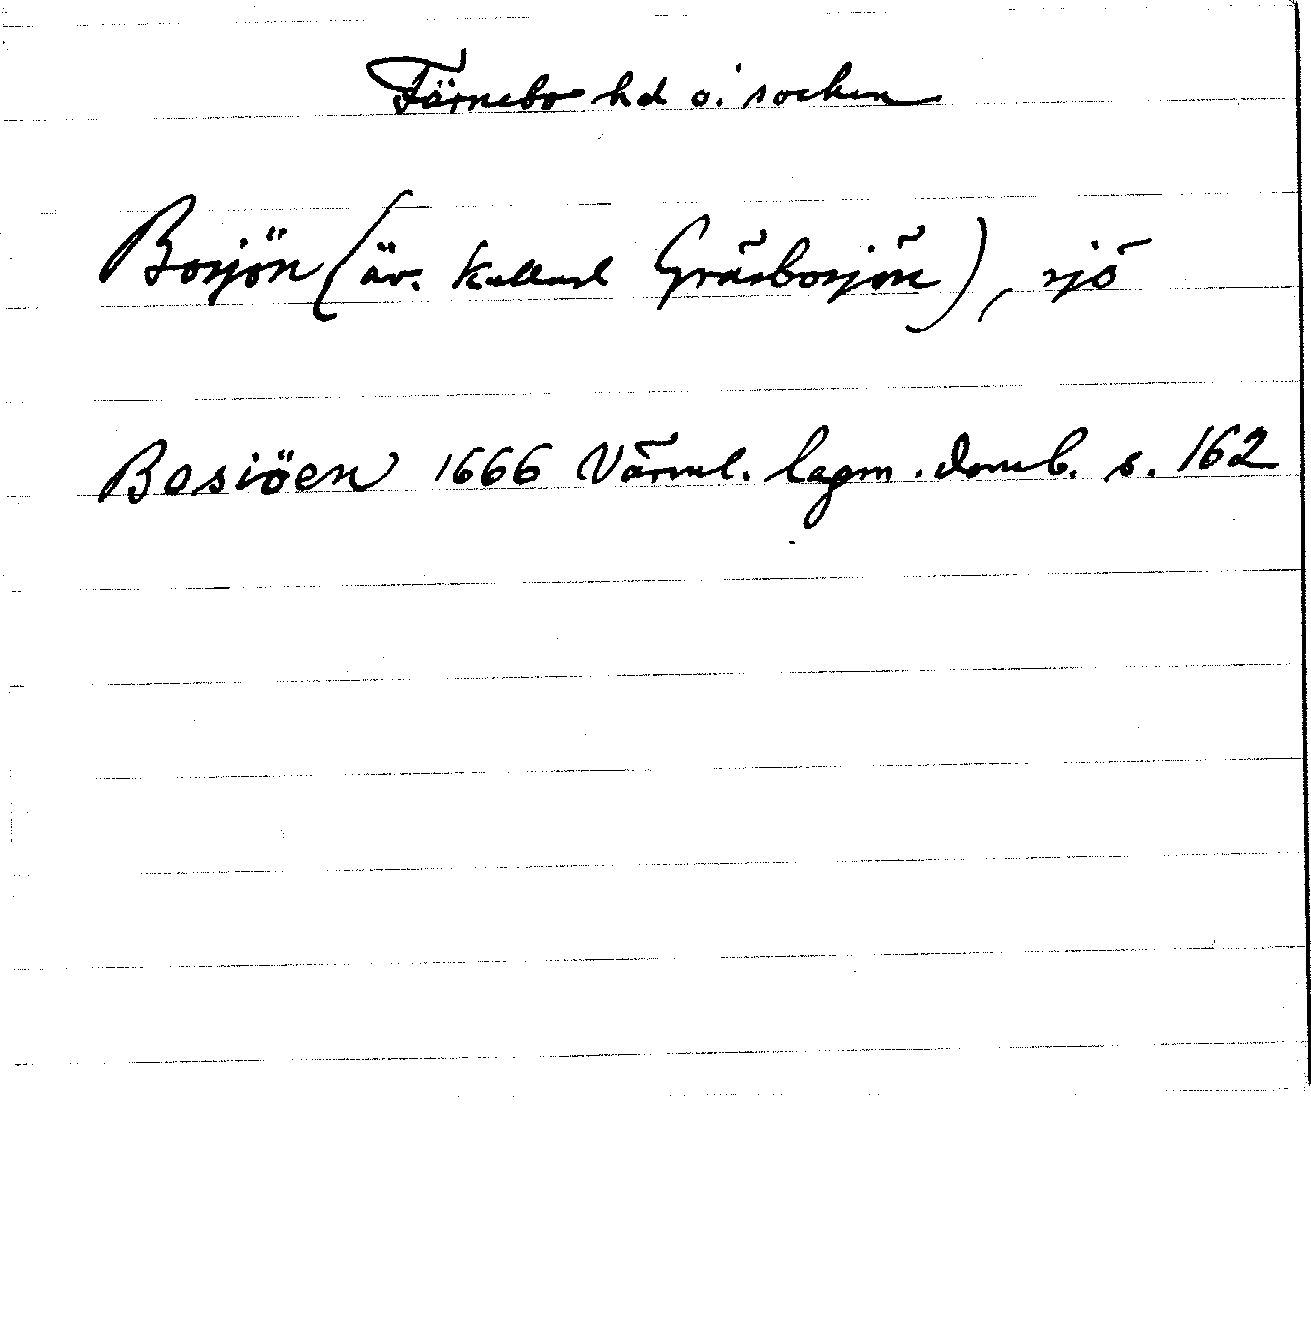 Färnebo hd o. socken
Bosjön (äv. kallad Gräsbosjön), sjö
Bosiöen 1666 Värml. lagm. domb. s. 162